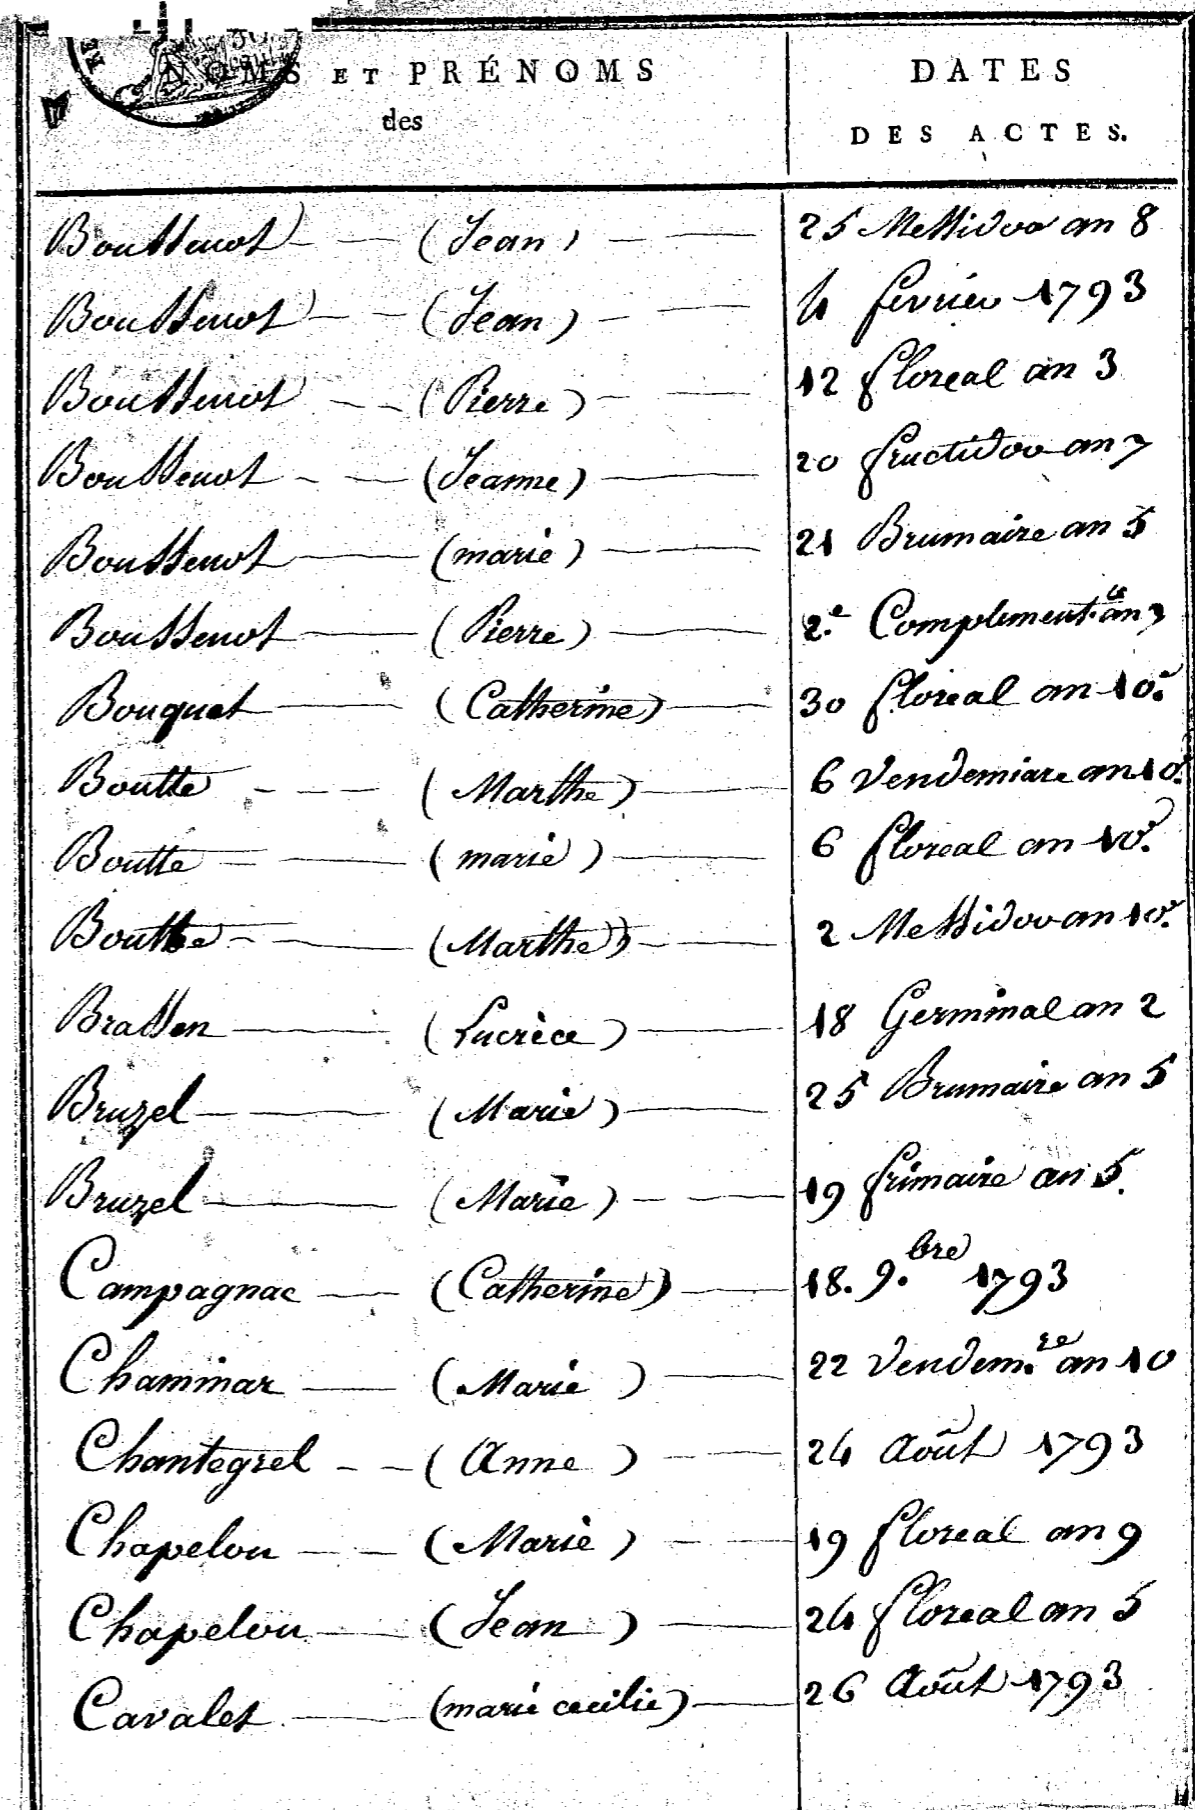 NOMS ET PRÉNOMS
des
DATES
DES ACTES.
Boussenot (Jean) 25 Messidor an 8
Boussenot (Jean) 4 fevrier 1793
Boussenot (Pierre) 12 floreal an 3
Boussenot (Jeanne) 20 fructidor an 7
Boussenot (marie) 21 Brumaire an 5
Boussenot (Pierre) 2.e Complement.re an 3
Bouquet (Catherine) 30 floreal an 10.e
Boutte (Marthe) 6 Vendemiare an 10.e
Boutte (marie) 6 floreal an 10.e
Boutte (Marthe) 2 Messidor an 10.e
Brassen (Lucrèce) 18 Germinal an 2
Bruzel (Marie) 25 Brumaire an 5
Bruzel (Marie) 19 frimaire an 5.
Campagnac (Catherine) 18. 9.bre 1793
Chaminar (Marie) 22 Vendem.re an 10
Chantegrel (Anne) 24 Août 1793
Chapelou (Marie) 19 floreal an 9
Chapelou (Jean) 24 floreal an 5
Cavalet (marie cecilie) 26 Août 1793